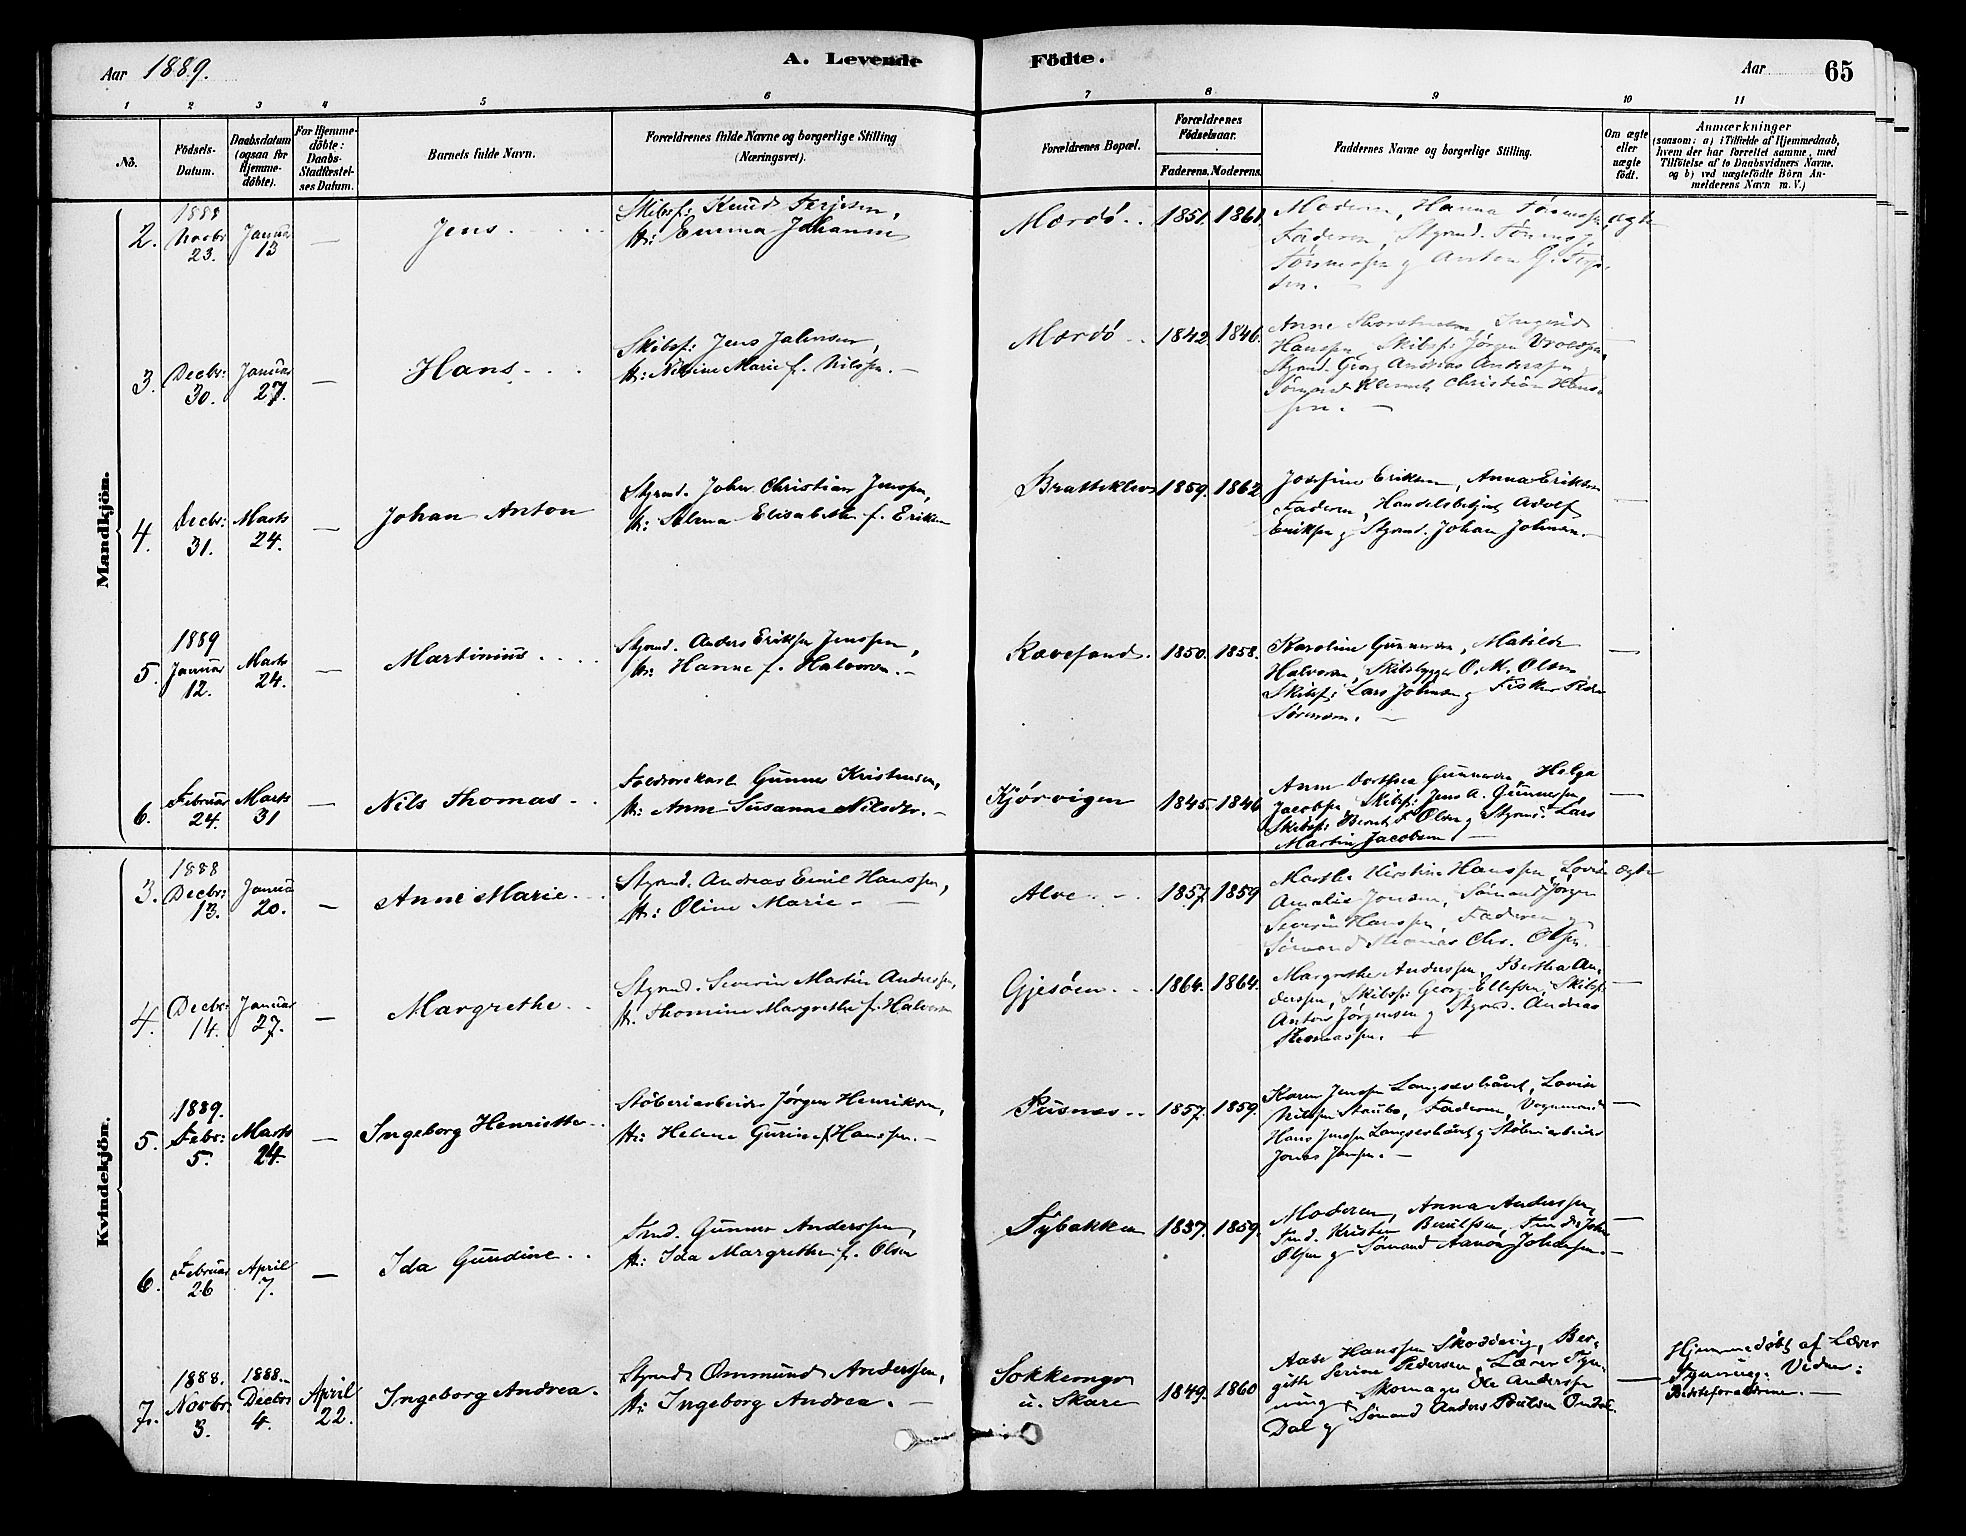 Aar 1889.
A. Levende Födte.
Aar 65
1 2 3 4 5 6 7 8 9 10 11
No.
Födsels-
Datum.
Daabsdatum
(ogsaa for
Hjemme-
döbte).
For Hjemme-
döbte:
Daabs-
Stadfæstel-
ses Datum.
Barnets fulde Navn.
Forældrenes fulde Navne og borgerlige Stilling
(Næringsvei).
Forældrenes Bopæl.
Forældrenes
Födselsaar.
Faderens. Moderens.
Faddernes Navne og borgerlige Stilling.
Om ægte
eller
uægte
födt.
Anmærkninger
(saasom: a) i Tilfælde af Hjemmedaab,
hvem der har forrettet samme, med
Tilföielse af to Daabsvidners Navne,
og b) ved uægtefödte Börn An-
melderens Navn m. V.)
Mandkjön.
2. 1888 Novbr 23. Januar 13 — Jens
Skibsf: Knud Terjesen,
H: Emma Johanne
Mærdö 1851. 1861.
Moderen, Hanna
Faderen, Styrmd.
Anton G. Terje-
sen. —
ægte
3. Decbr: 30. Januar 27. — Hans
Skibsf: Jens Johnsen,
H: Marie f. Nilssen. —
Mærdö 1842 1846.
Anne Ingerid
Hanssen, Skibsf: Jörgen
Styrmd. Georg Andreas Anderssen
Sömand Christian Hans-
sen. —
—
4. Decbr: 31. Marts 24. — Johan Anton
Styrmd. John Christian Jenssen,
H: Selma Elisabeth f. Eriksen
Brattekleiv 1859. 1862
Josefine Eriksen, Anna Eriksen
Faderen, Handelsbetjent Adolf
Eriksen og Styrmd. Johan Johnsen. —
—
5. 1889 Januar 12. Marts 24. — Martinius
Styrmd. Anders Eriksen Jenssen,
H: Hanne f. Halvorsen. —
Rævesand. 1850. 1858.
Karoline Gunnersen, Matilde
Halvorsen, Skibsbygger O. M. Olsen
Skibsf: Lars Johnsen og Fisker Peder
Sörensen. —
—
6. Februar 24. Marts 31 — Nils Thomas
Gunner Kristensen,
H: Anne Susanne Nilsdtr. —
Kjörvigen 1845. 1846
Anne Dorthea Gunnersen, Helga
Jacobsen, Skibsf: Jens A. Gunnersen,
Skibsf: Bernt F. Olsen og Styrmd. Lars
Martin Jacobsen —
—
Kvindekjön.
3. 1888 Decbr: 13. Januar 20. — Anne Marie
Styrmd. Andreas Emil Hanssen,
H: Oline Marie —
Alve 1857. 1859
Marthe Kirstine Hanssen, Lovise
Amalie Jensen, Sömand Jörgen
Severin Hanssen, Faderen og
Sömand Thomas Chr. Olsen.
ægte
4. Decbr: 14. Januar 27. — Margrethe
Styrmd. Severin Martin Anderssen,
H: Thomine Margrethe f. Halvorsen
Gjesöen 1864. 1864.
Margrethe Anderssen, Berthea An-
derssen, Skibsf: Georg Ellefsen, Skibsf:
Anton Jörgensen og Styrmd. Andreas
Thomassen. —
—
5. 1889. Febr: 5. Marts 24. — Ingeborg Henriette
Stöberiarbeider Jörgen Henriksen,
H: Helene Gurine f. Hanssen. —
Pusnes 1857. 1859.
Karen Jenssen Langsæ, Lovise
Nilssen Staubö, Faderen, Vognmand
Hans Jenssen Langsæ og Stöberiarbeider
Jonas Jenssen. —
—
6. Februar 26 April 7. — Ida Gundine
Smd. Gunner Anderssen,
H: Ida Margrethe f. Olsen
Sybakken 1857. 1859.
Moderen, Anna Anderssen,
Smd. Kristen Berulfsen, John
Olsen og Sömand Johansen. —
—
7. 1888. Novbr: 3. 1888. Decbr: 4. April 22. Ingeborg Andrea.
Styrmd. Ommund Anderssen,
H: Ingeborg Andrea. —
Sokkemyr
u. Skare 1849. 1860
Aase Hanssen Skoddevig, Ber-
gitte Serine Pedersen, Lærer Fyn-
ning, Skomager Ole Anderssen
Dal og Sömand Anders Poulsen
—
Hjemmedöbt af Lærer
Fynning. Vidner:
Bedsteforældrene. —